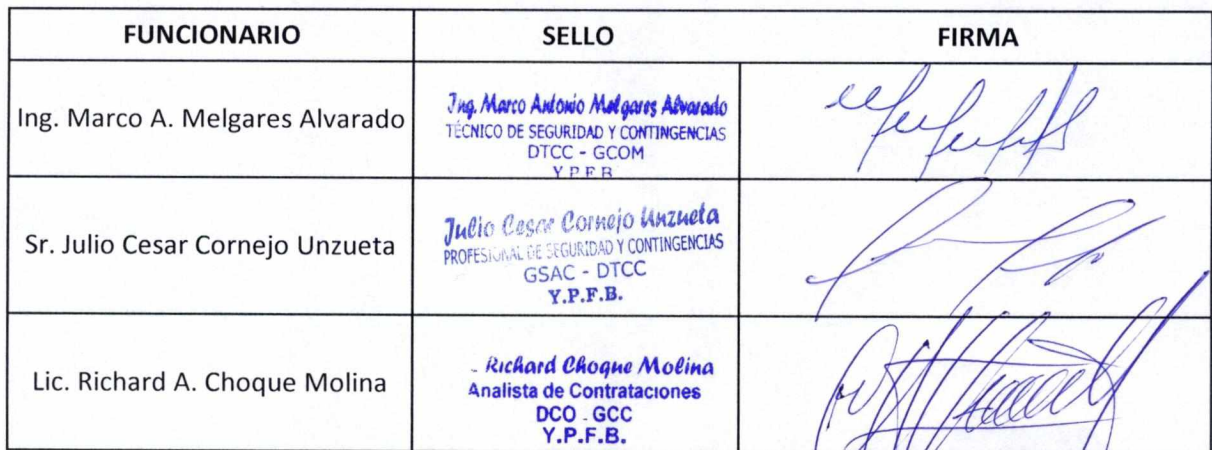 FUNCIONARIO SELLO FIRMA
Ing. Marco A. Melgares Alvarado
Ing. Marco Antonio Melgares Alvarado
TÉCNICO DE SEGURIDAD Y CONTINGENCIAS
DTCC - GCOM
Y.P.F.B.
Sr. Julio Cesar Cornejo Unzueta
Julio Cesar Cornejo Unzueta
PROFESIONAL DE SEGURIDAD Y CONTINGENCIAS
GSAC - DTCC
Y.P.F.B.
Lic. Richard A. Choque Molina
Richard Choque Molina
Analista de Contrataciones
DCO - GCC
Y.P.F.B.